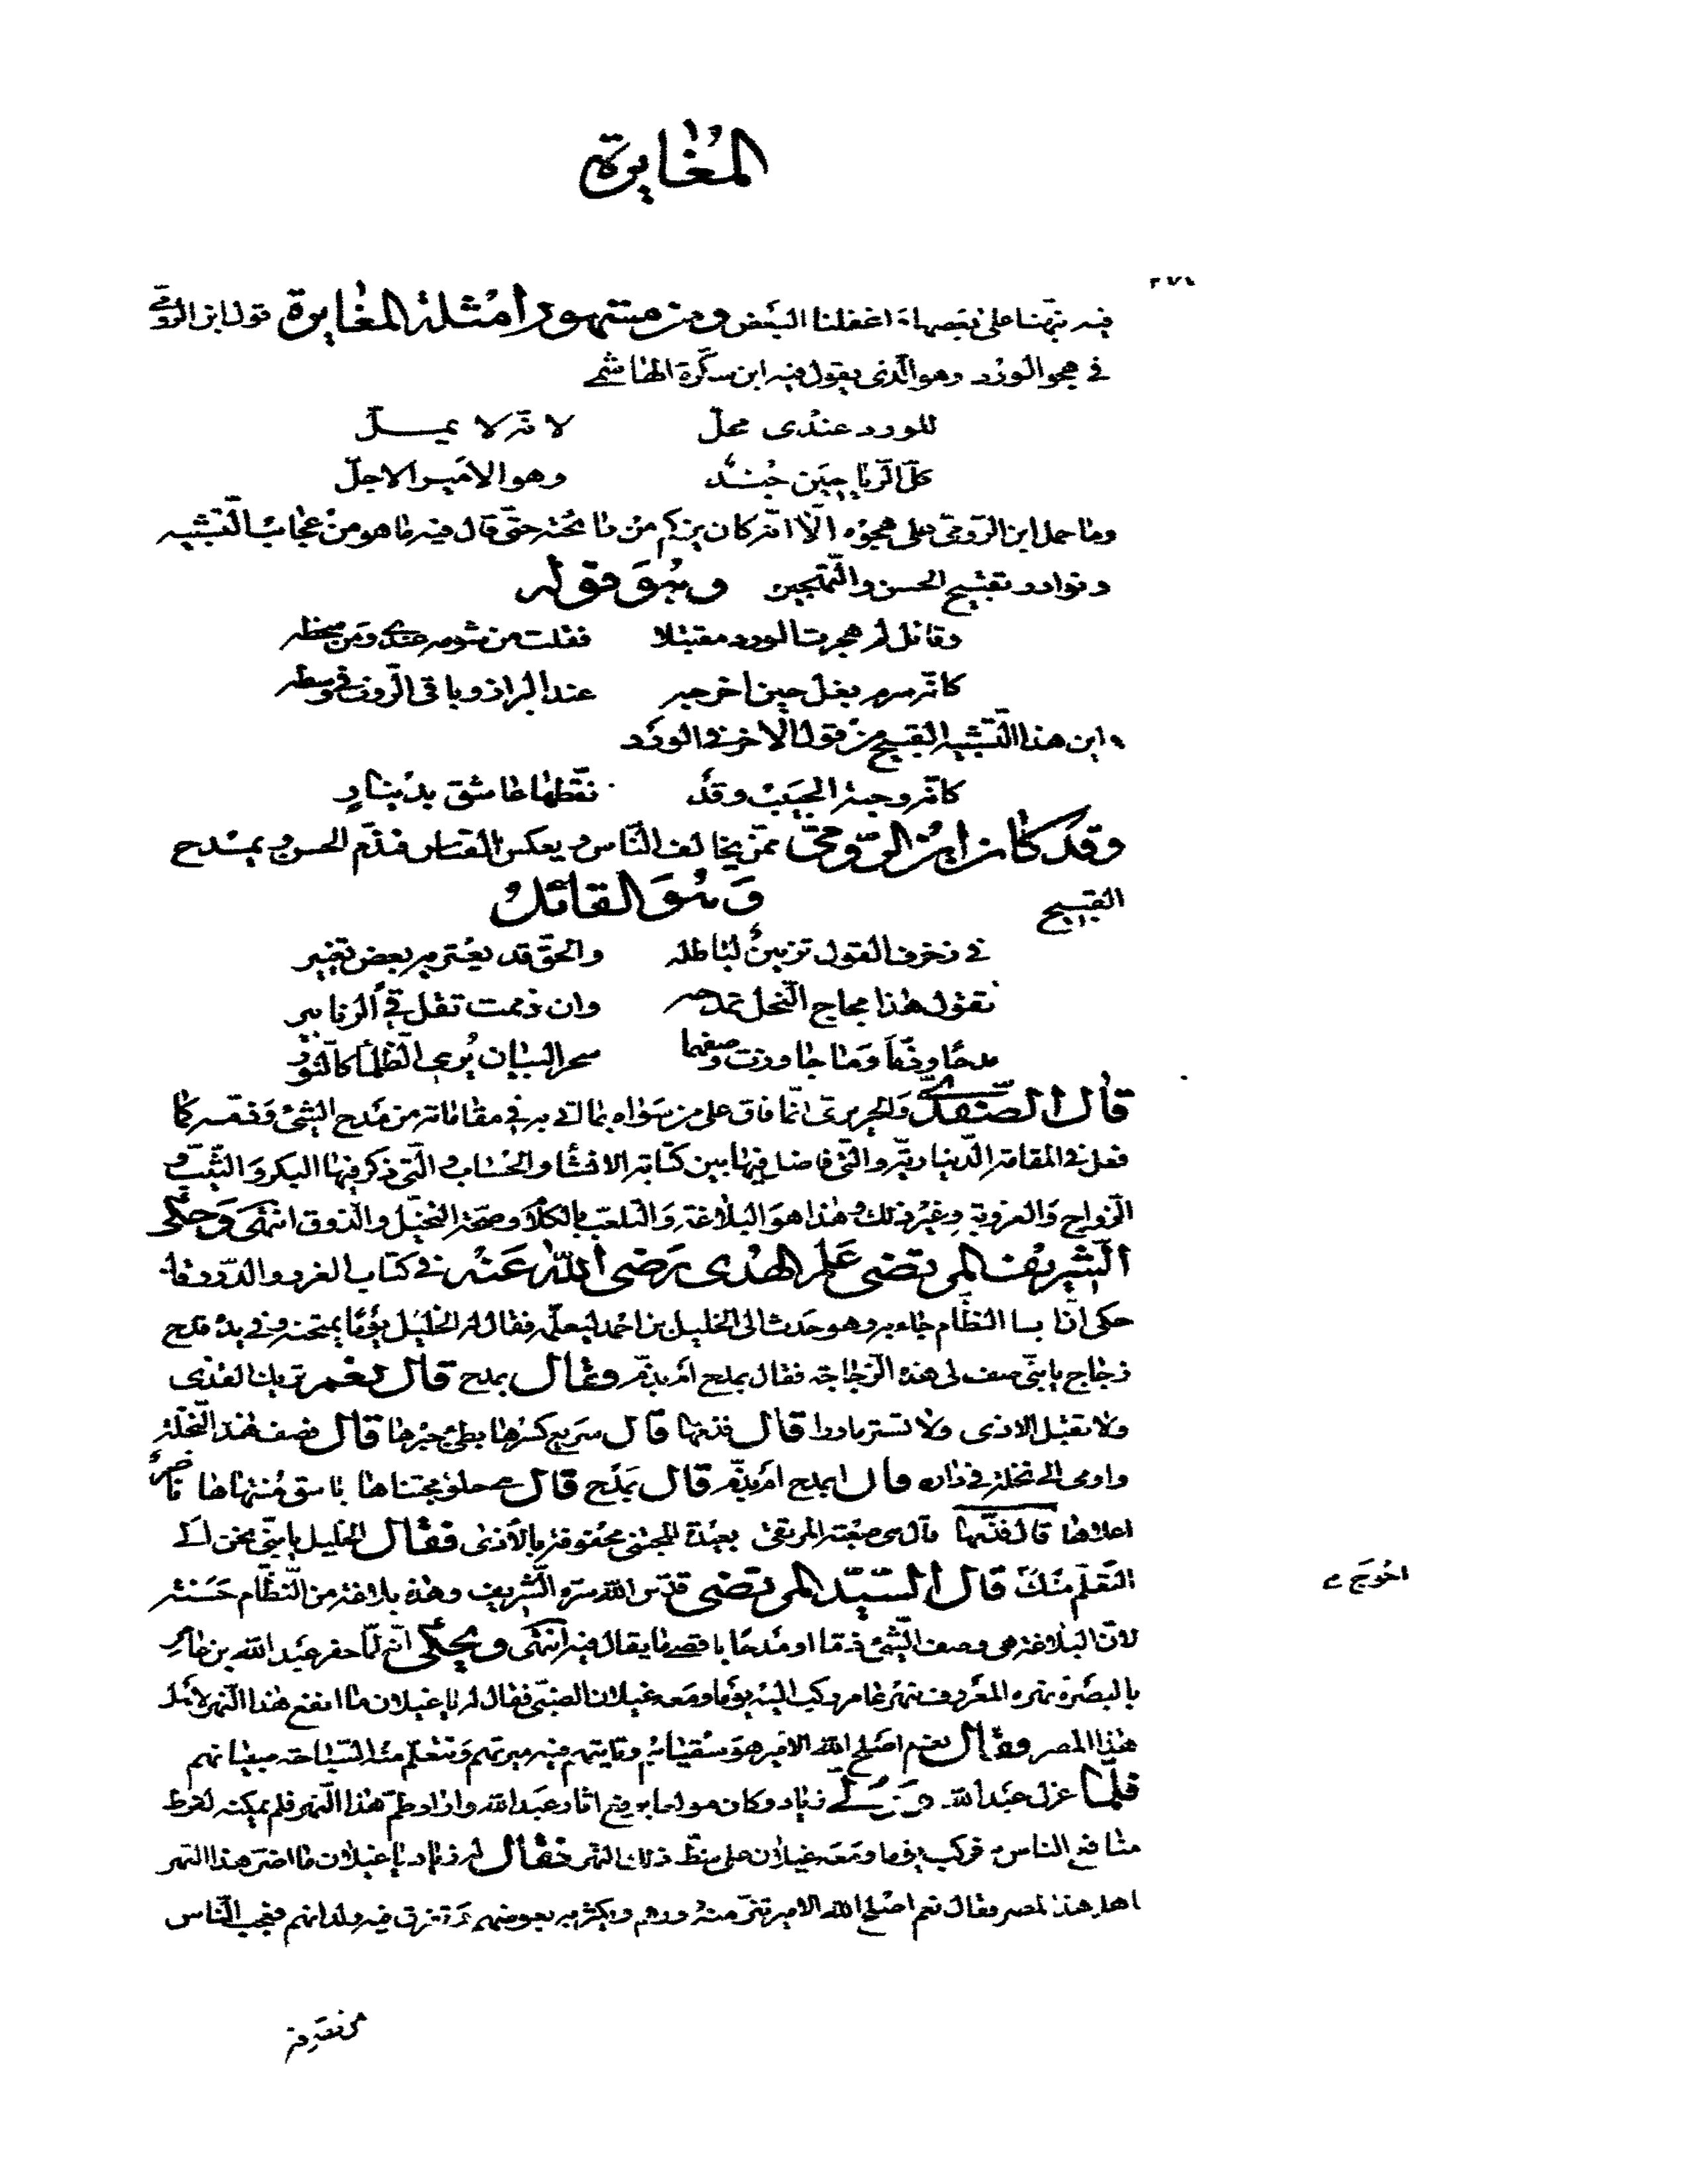 المغايرة
٢٧٤
فيه نبهنا على بعضها و اغفلنا البعض ومن مشهور امثلة المغايرة قول ابن الرومى
في هجو الورد وهو الّذى يقول فيه ابن سكّرة الهاشمى
للورد عندى محلّ لا نّه لا يملّ
كلّ الرّياحين جند وهو الامير الاجلّ
وما حمل ابن الرّومى على هجوه الّا انّه كان يزكم من رائحته حتّى قال فيه ما هو من عجائب التّشبيه
ونوادر تقبيح الحسن والتّهجين وهو قوله
وقائل لم هجرت الورد مقتبلا فقلت من شومه عندى ومن سخطه
كانّه سرم بغل حين اخرجه عند البراز وباقى الرّوث في وسطه
و اين هذا التّشبيه القبيح من قول الاخر في الورد
كانّه وجنة الحبيب وقد نقّطها عاشق بدينار
وقد كان ابن الرّومىّ ممّن يخالف النّاس ويعكس القياس فيذّم الحسن ويمدح
القبيح وهو القائل
في زخرف القول تزيين لباطله والحقّ قد يعتريه بعض تغيير
تقول هذا مجاج النّحل تمدحه وان ذممت تقل قئ الزنابير
مدحًا وذمّا وما جاوزت وصفهما سحر البيان يُرى الظّلماء كالنّور
قال الصّفدىّ والحريرى انّما فاق على من سواه بما اتى به في مقاماته من مدح الشئ وذمّه كما
فعل في المقامة الدّيناريّة والتّى فاضل فيها بين كتابة الانشاء والحساب والّتى ذكر فيها البكر والثّيّب و
الزواج والعزوبة وغير ذلك وهذا هو البلاغة والتلعب بالكلام وصحّة التخيّل والذوق انتهى وحكى
الشّريف المرتضى علم الهدى رضى الله عنه في كتاب الغرر والدّرر قال
حكى انّ ابا النظّام جاء به وهو حدث الى الخليل بن احمد ليعلّمه فقال له الخليل يومًا يمتحنه وفي يده قدح
زجاج يا بنّى صف لى هذه الزّجاجة فقال بمدح ام بذمّ وقال بمدح قال نعم تريك القذى
ولا تقبل الاذى ولا تستر ماورا قال فذمّها قال سريع كسرها بطئ جبرها قال فصف هذه النّخلة
واومى الى نخلة في داره قال ابمدح ام بذمّ قال بمدح قال هي حلو مجتناها باسق منتهاها ناضر
اعلاها قال فذمّها قال هي صعبة المرتقى بعيدة المجتنى محفوفة بالأذى فقال الخليل يا بنّى نحن الى
التعلّم منك قال السّيّد المرتضى قدّس الله سرّه الشّريف وهذه بلاغة من النّظّام حسنة
احوج ص
لانّ البلاغة هى وصف الشّئ ذمّا او مدحًا باقصى ما يقال فيه انتهى ويحكى انّه لمّا حفر عبد الله بن عامر
بالبصرة نهره المعروف بنهر عامر وركب اليه يومًا ومعه غيلان الضبّى فقال له يا غيلان ما انفع هذا النّهر لاهل
هذا المصر وقال نعم اصلح الله الامير هو سقياهم وتاتيهم فيه ميرتهم وتتعلّم منه السّباحة صبيانهم
فلمّا عزل عبد الله وولى زياد وكان مولعا برفع اثار عبد الله واراد طمّ هذا النّهر فلم يمكنه لفرط
منافع الناس فركب يوما ومعه غيلان على شطّ ذلك النهر فقال له زياد يا غيلان ما اضرّ هذا النهر
اهل هذا المصر فقال نعم اصلح الله الامير تنزّ منه دورهم ويكثر به بعوضهم وتغرق فيه ولدانهم فعجب النّاس